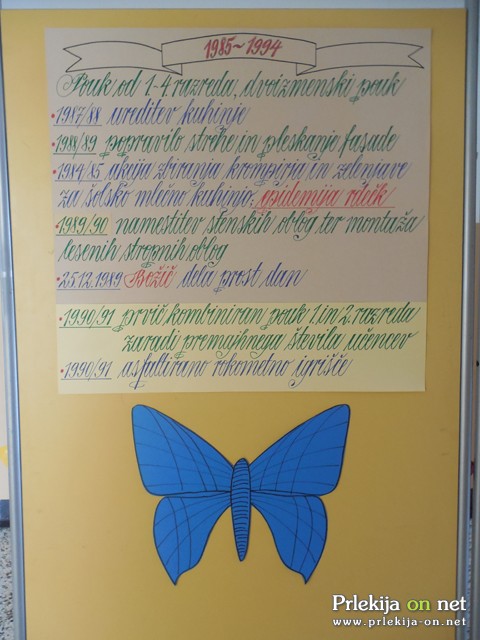 1985~1994
Pouk od 1-4 razreda, dvoizmenski pouk
• 1987/88 ureditev kuhinje
• 1988/89 popravilo strehe in pleskanje fasade
• 1984/85 akcija zbiranja krompirja in zelenjave
za šolsko mlečno kuhinjo, epidemija rdečk
• 1989/90 namestitev stenskih oblog ter montaža
lesenih stropnih oblog
• 25.12.1989 Božič dela prost dan
• 1990/91 prvič kombiniran pouk 1. in 2. razreda
zaradi premajhnega števila učencev
• 1990/91 asfaltirano rokometno igrišče
Prlekija on net
www.prlekija-on.net